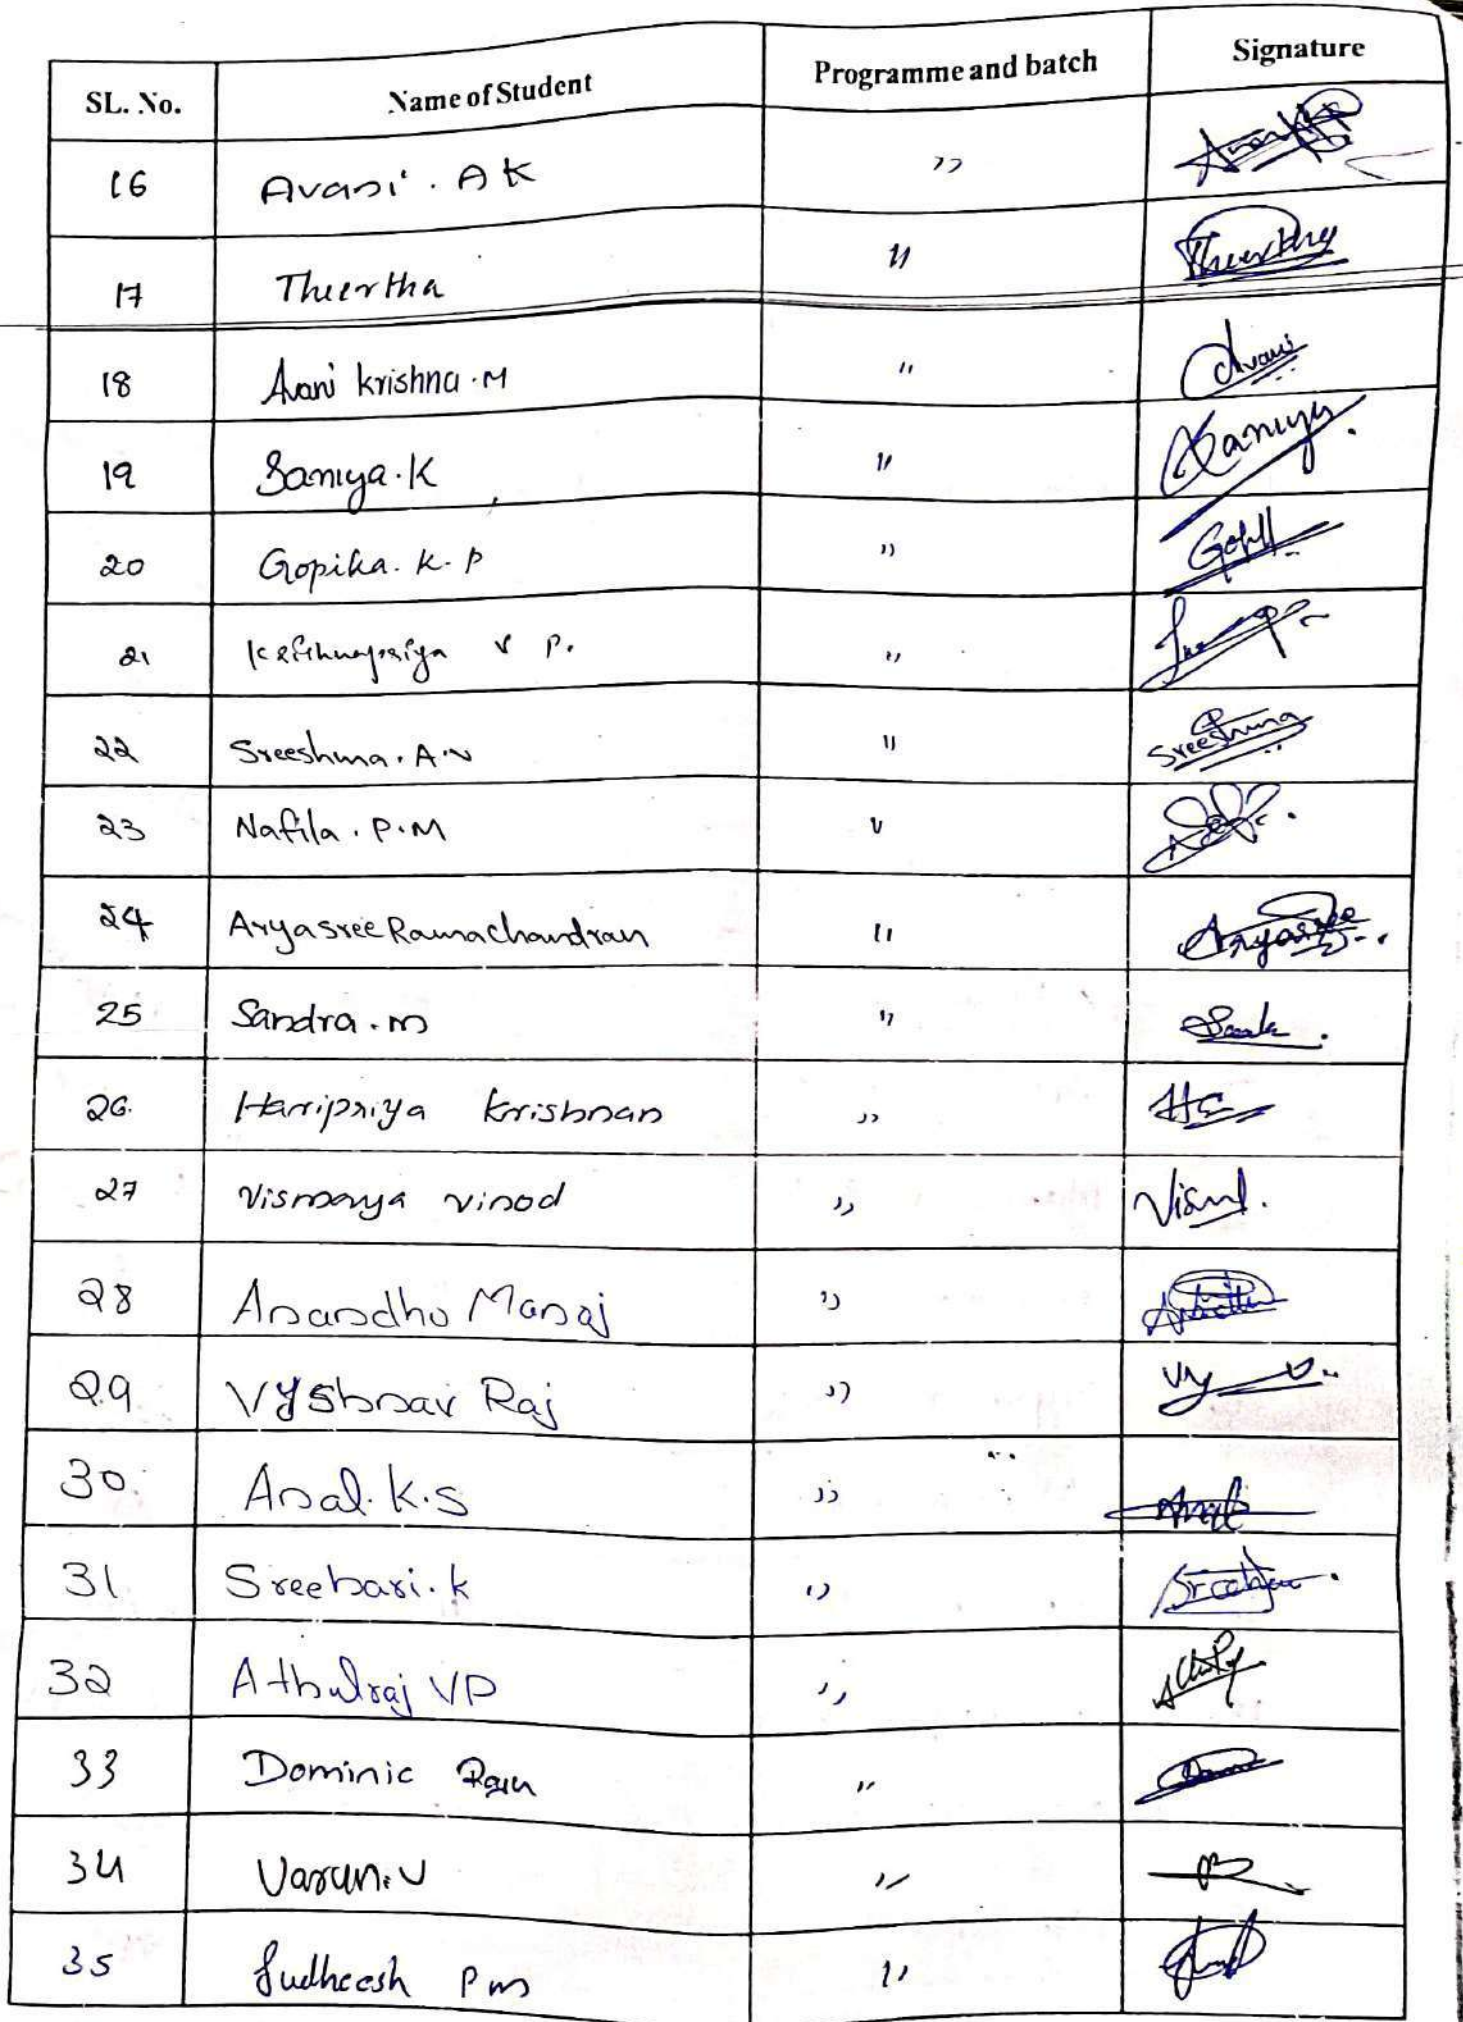 SL. No. Name of Student Programme and batch Signature
16 Avani . A K ,,
17 Theertha "
18 Avani krishna . M " Avani
19 Saniya . K " Saniya
20 Gopika . K . P ,,
21 Krishnapriya V P. "
22 Sreeshma . A . V " Sreeshma
23 Nafila . P . M "
24 Aryasree Ramachandran " Aryasree
25 Sandra . m "
26. Haripriya Krishnan ,,
27 Vismaya Vinod ,,
28 Anandhu Manoj ,,
29 Vyshnav Raj ,,
30. Anal . K . S ,,
31 Sreehari . k ,,
32 Athulraj VP ,,
33 Dominic "
34 Varun . V "
35 Sudheesh P m "